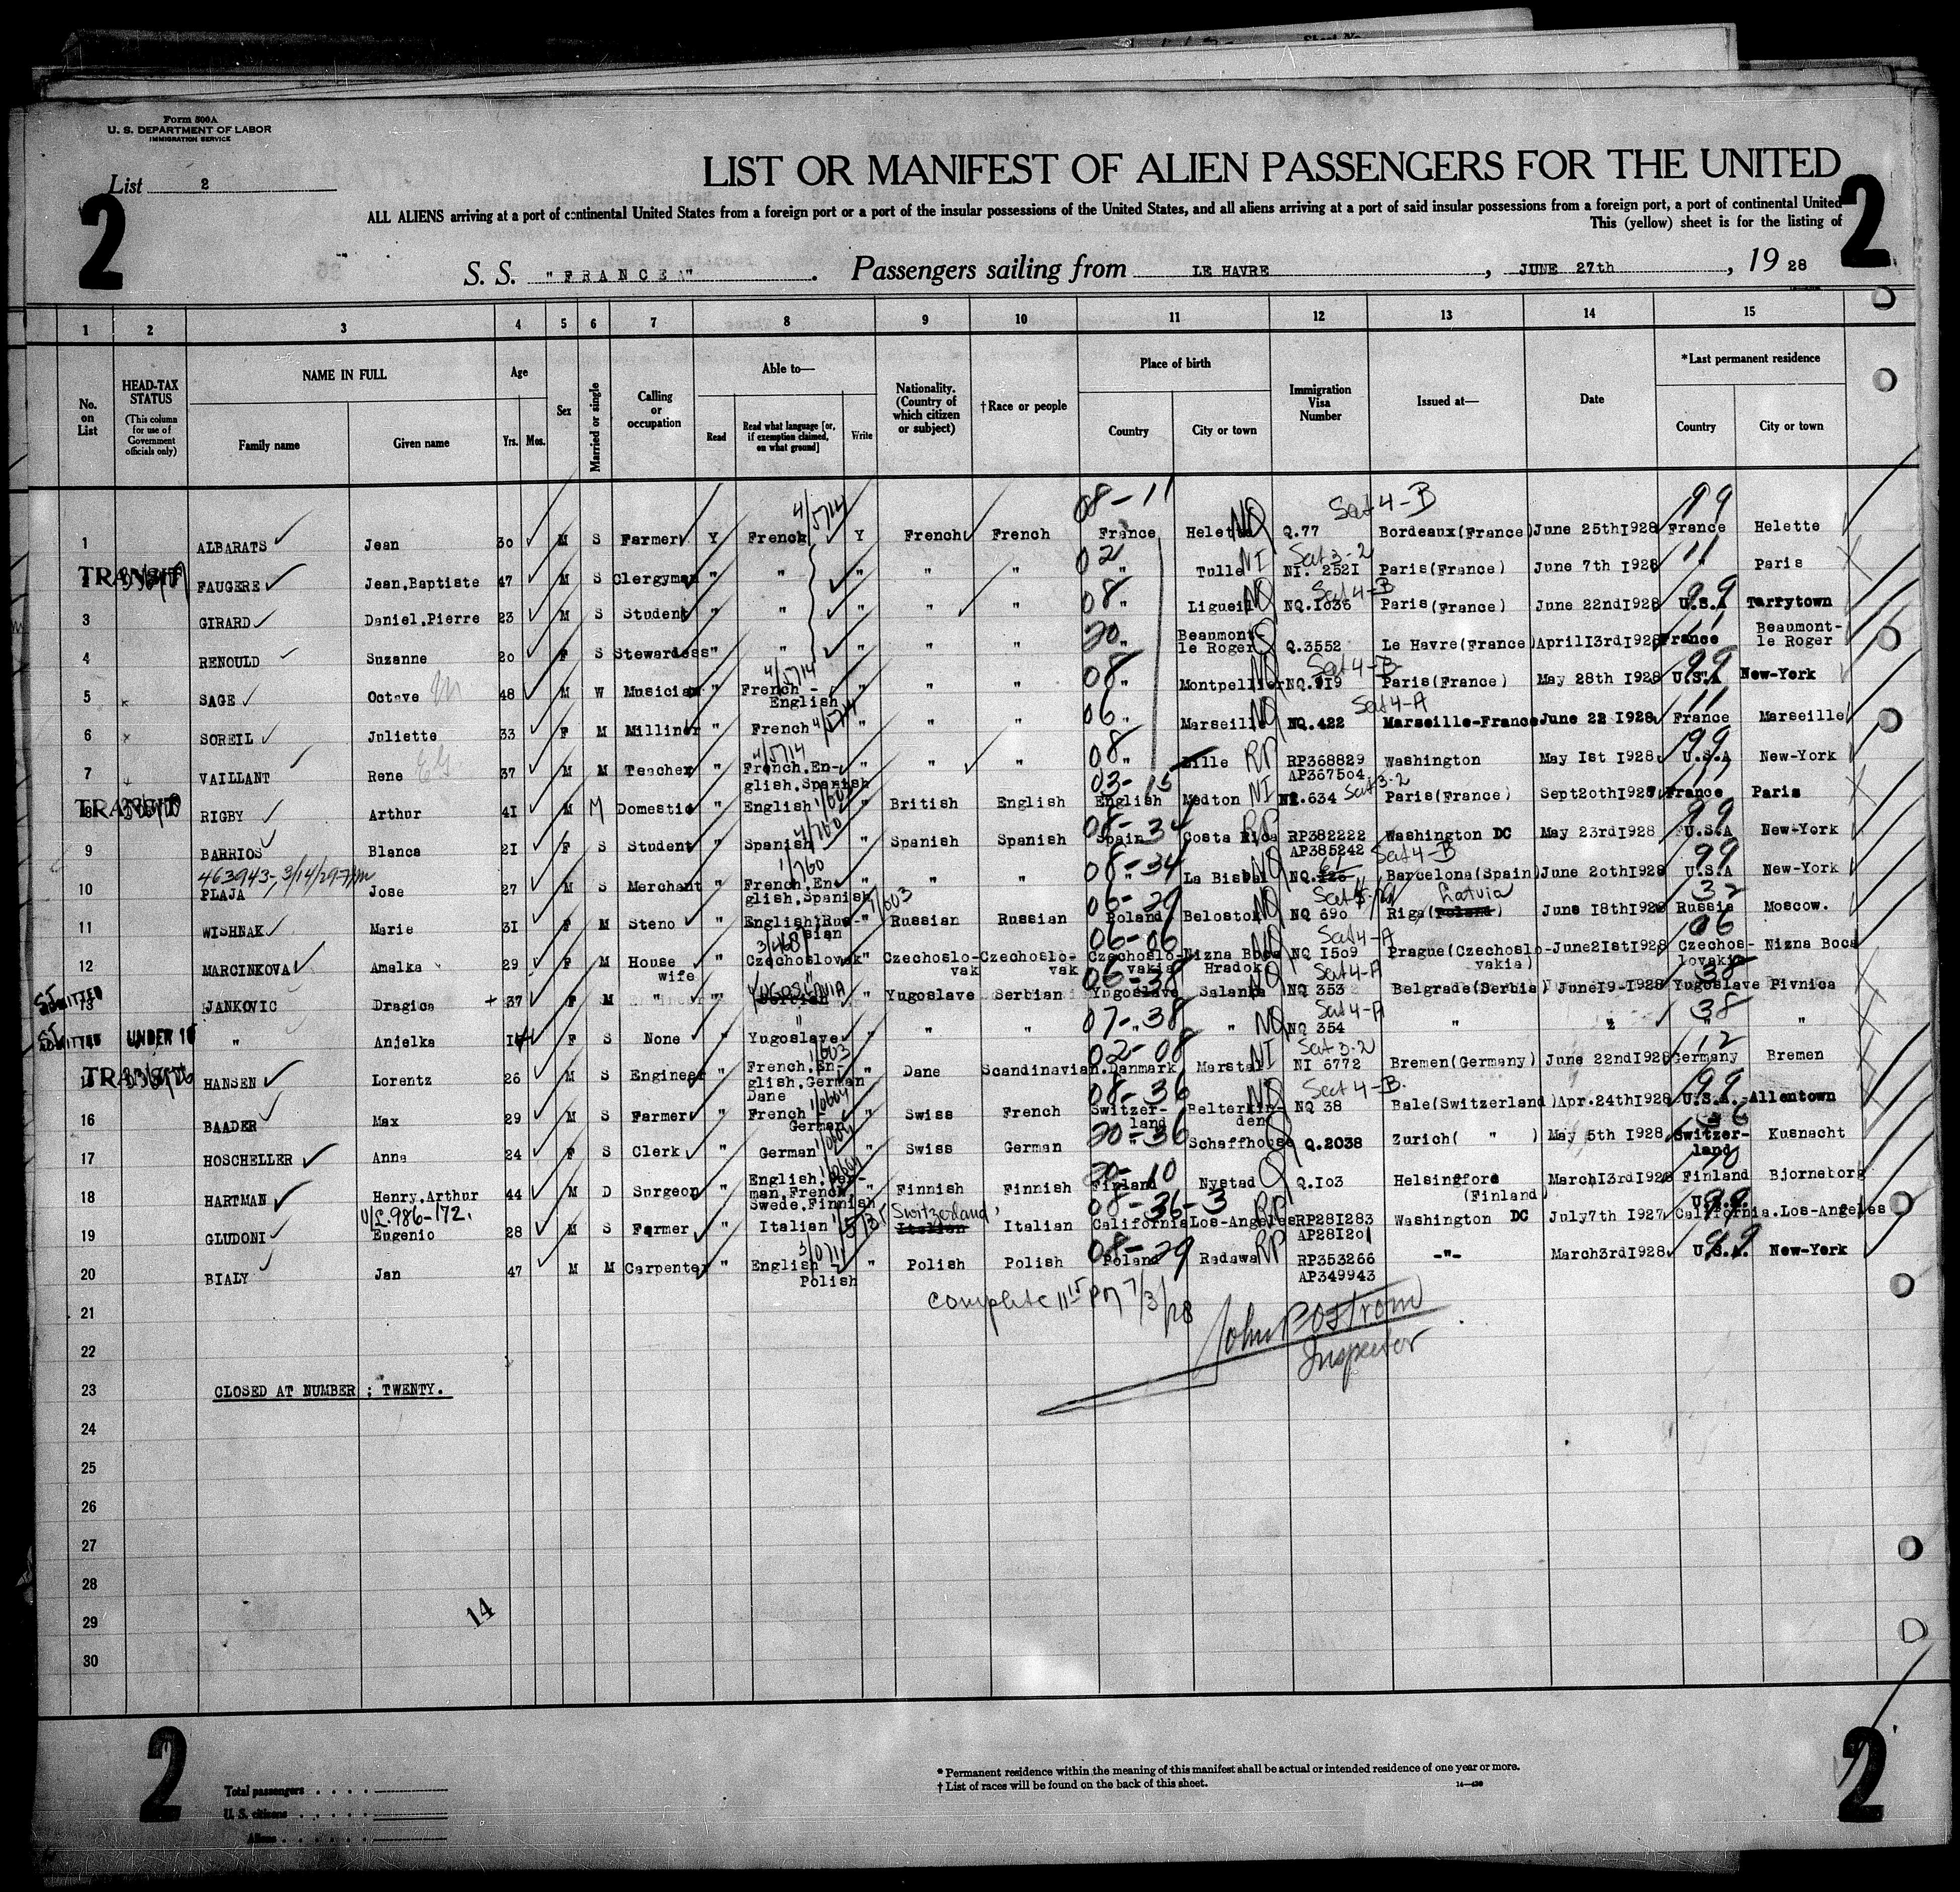 Form 500A
U. S. DEPARTMENT OF LABOR
IMMIGRATION SERVICE
List 2
2
2
LIST OR MANIFEST OF ALIEN PASSENGERS FOR THE UNITED
ALL ALIENS arriving at a port of continental United States from a foreign port or a port of the insular possessions of the United States, and all aliens arriving at a port of said insular possessions from a foreign port, a port of continental United
This (yellow) sheet is for the listing of
S. S. "FRANCE" . Passengers sailing from LE HAVRE , JUNE 27th , 19 28
1 2 3 4 5 6 7 8 9 10 11 12 13 14 15
No. on List
HEAD-TAX STATUS (This column for use of Government officials only)
NAME IN FULL Family name Given name
Age Yrs. Mos.
Sex
Married or single
Calling or occupation
Able to— Read Read what language [or, if exemption claimed, on what ground] Write
Nationality. (Country of which citizen or subject)
†Race or people
Place of birth Country City or town
Immigration Visa Number
Issued at—
Date
*Last permanent residence Country City or town
08-11 Sect 4-B 99
1 ALBARATS Jean 30 M S Farmer Y French Y French French France Helette NQ Q.77 Bordeaux(France) June 25th1928 France Helette
TRANSIT FAUGERE Jean,Baptiste 47 M S Clergyman " " " " " 02 " Tulle NI NI. 2521 Sect 3-2 Paris(France) June 7th 1928 11 " Paris
3 GIRARD Daniel,Pierre 23 M S Student " " " " " 08 " Ligueil NQ NQ.1036 Sect 4-B Paris(France) June 22nd1928 99 U.S.A Tarrytown
4 RENOULD Suzanne 20 F S Stewardess " " " " " 20 " Beaumont-le Roger Q Q.3552 Le Havre(France) April13rd1928 11 France Beaumont-le Roger
5 SAGE Octave 48 M W Musician " French - English " " " 08 " Montpellier NQ NQ.919 Sect 4-B Paris(France) May 28th 1928 99 U.S.A New-York
6 SOREIL Juliette 33 F M Milliner " French " " " 06 " Marseille NQ NQ.422 Sect 4-A Marseille-France June 22 1928 11 France Marseille
7 VAILLANT Rene 37 M M Teacher " French.English,Spanish " " " 08 " Lille RP RP368829 AP367504 Washington May 1st 1928 99 U.S.A New-York
TRANSIT 8 RIGBY Arthur 41 M M Domestic " English " British English 03-15 English Medton NI NI.634 Sect 3-2 Paris(France) Sept20th1927 11 France Paris
9 BARRIOS Blanca 21 F S Student " Spanish " Spanish Spanish 08-34 Spain Costa Rica RP RP382222 AP385242 Washington DC May 23rd1928 99 U.S.A New-York
463943-3/14/29
10 PLAJA Jose 27 M S Merchant " French,English,Spanish " " " 08-34 " La Bisbal NQ NQ. 61 Sect 4-B Barcelona(Spain) June 20th1928 99 U.S.A New-York
11 WISHNAK Marie 31 F M Steno " English,Russian " Russian Russian 06-29 Poland Belostok NQ NQ 690 Riga(Poland) Latvia June 18th1928 32 Russia Moscow.
12 MARCINKOVA Amalka 29 F M House wife " Czechoslovak " Czechoslo-vak Czechoslo-vak 06-06 Czechoslo-vakia Nizna Boca Hradok NQ NQ 1509 Sect 4-A Prague(Czechoslo-vakia) June21st1928 06 Czechos-lovakia Nizna Boca
ADMITTED 13 JANKOVIC Dragica 37 F M " " YUGOSLAVIA " Yugoslave Serbian 06-38 Yugoslave Salanka NQ NQ 353 Sect 4-A Belgrade(Serbia) June19-1928 38 Yugoslave Pivnica
ADMITTED UNDER 16 " Anjelka F S None " Yugoslave " " " 07-38 " " NQ NQ 354 Sect 4-A " " 38 " "
TRANSIT HANSEN Lorentz 26 M S Engineer " French,English,German Dane " Dane Scandinavian. 02-08 Danmark Marstal NI NI 6772 Sect 3-2 Bremen(Germany) June 22nd1928 12 Germany Bremen
16 BAADER Max 29 M S Farmer " French German " Swiss French 08-36 Switzer-land Belterkin-den NQ NQ 38 Sect 4-B. Bale(Switzerland) Apr.24th1928 99 U.S.A.-Allentown
17 HOSCHELLER Anna 24 F S Clerk " German " Swiss German 20-36 " Schaffhouse Q Q.2038 Zurich( " ) May 5th 1928 36 Switzer-land Kusnacht
18 HARTMAN Henry.Arthur 44 M D Surgeon " English,German,French Swede.Finnish " Finnish Finnish 20-10 Finland Nystad Q Q.103 Helsingfors (Finland) March13rd1928 10 Finland Bjorneborg
V/L.986-172.
19 GLUDONI Eugenio 28 M S Farmer " Italian " Italian Switzerland Italian 08-36-3 California Los-Angeles RP RP281283 AP281201 Washington DC July7th 1927 99 U.S.A. California.Los-Angeles
20 BIALY Jan 47 M M Carpenter " English Polish " Polish Polish 08-29 Poland Radawa RP RP353266 AP349943 -"- March3rd1928 99 U.S.A. New-York
21
complete 11 15 PM 7/3/28
22
John P Ostrom
Inspector
23 CLOSED AT NUMBER ; TWENTY.
24
25
26
27
28
29
14
30
2
2
Total passengers
U. S. citizens
Aliens
* Permanent residence within the meaning of this manifest shall be actual or intended residence of one year or more.
† List of races will be found on the back of this sheet.
14—430